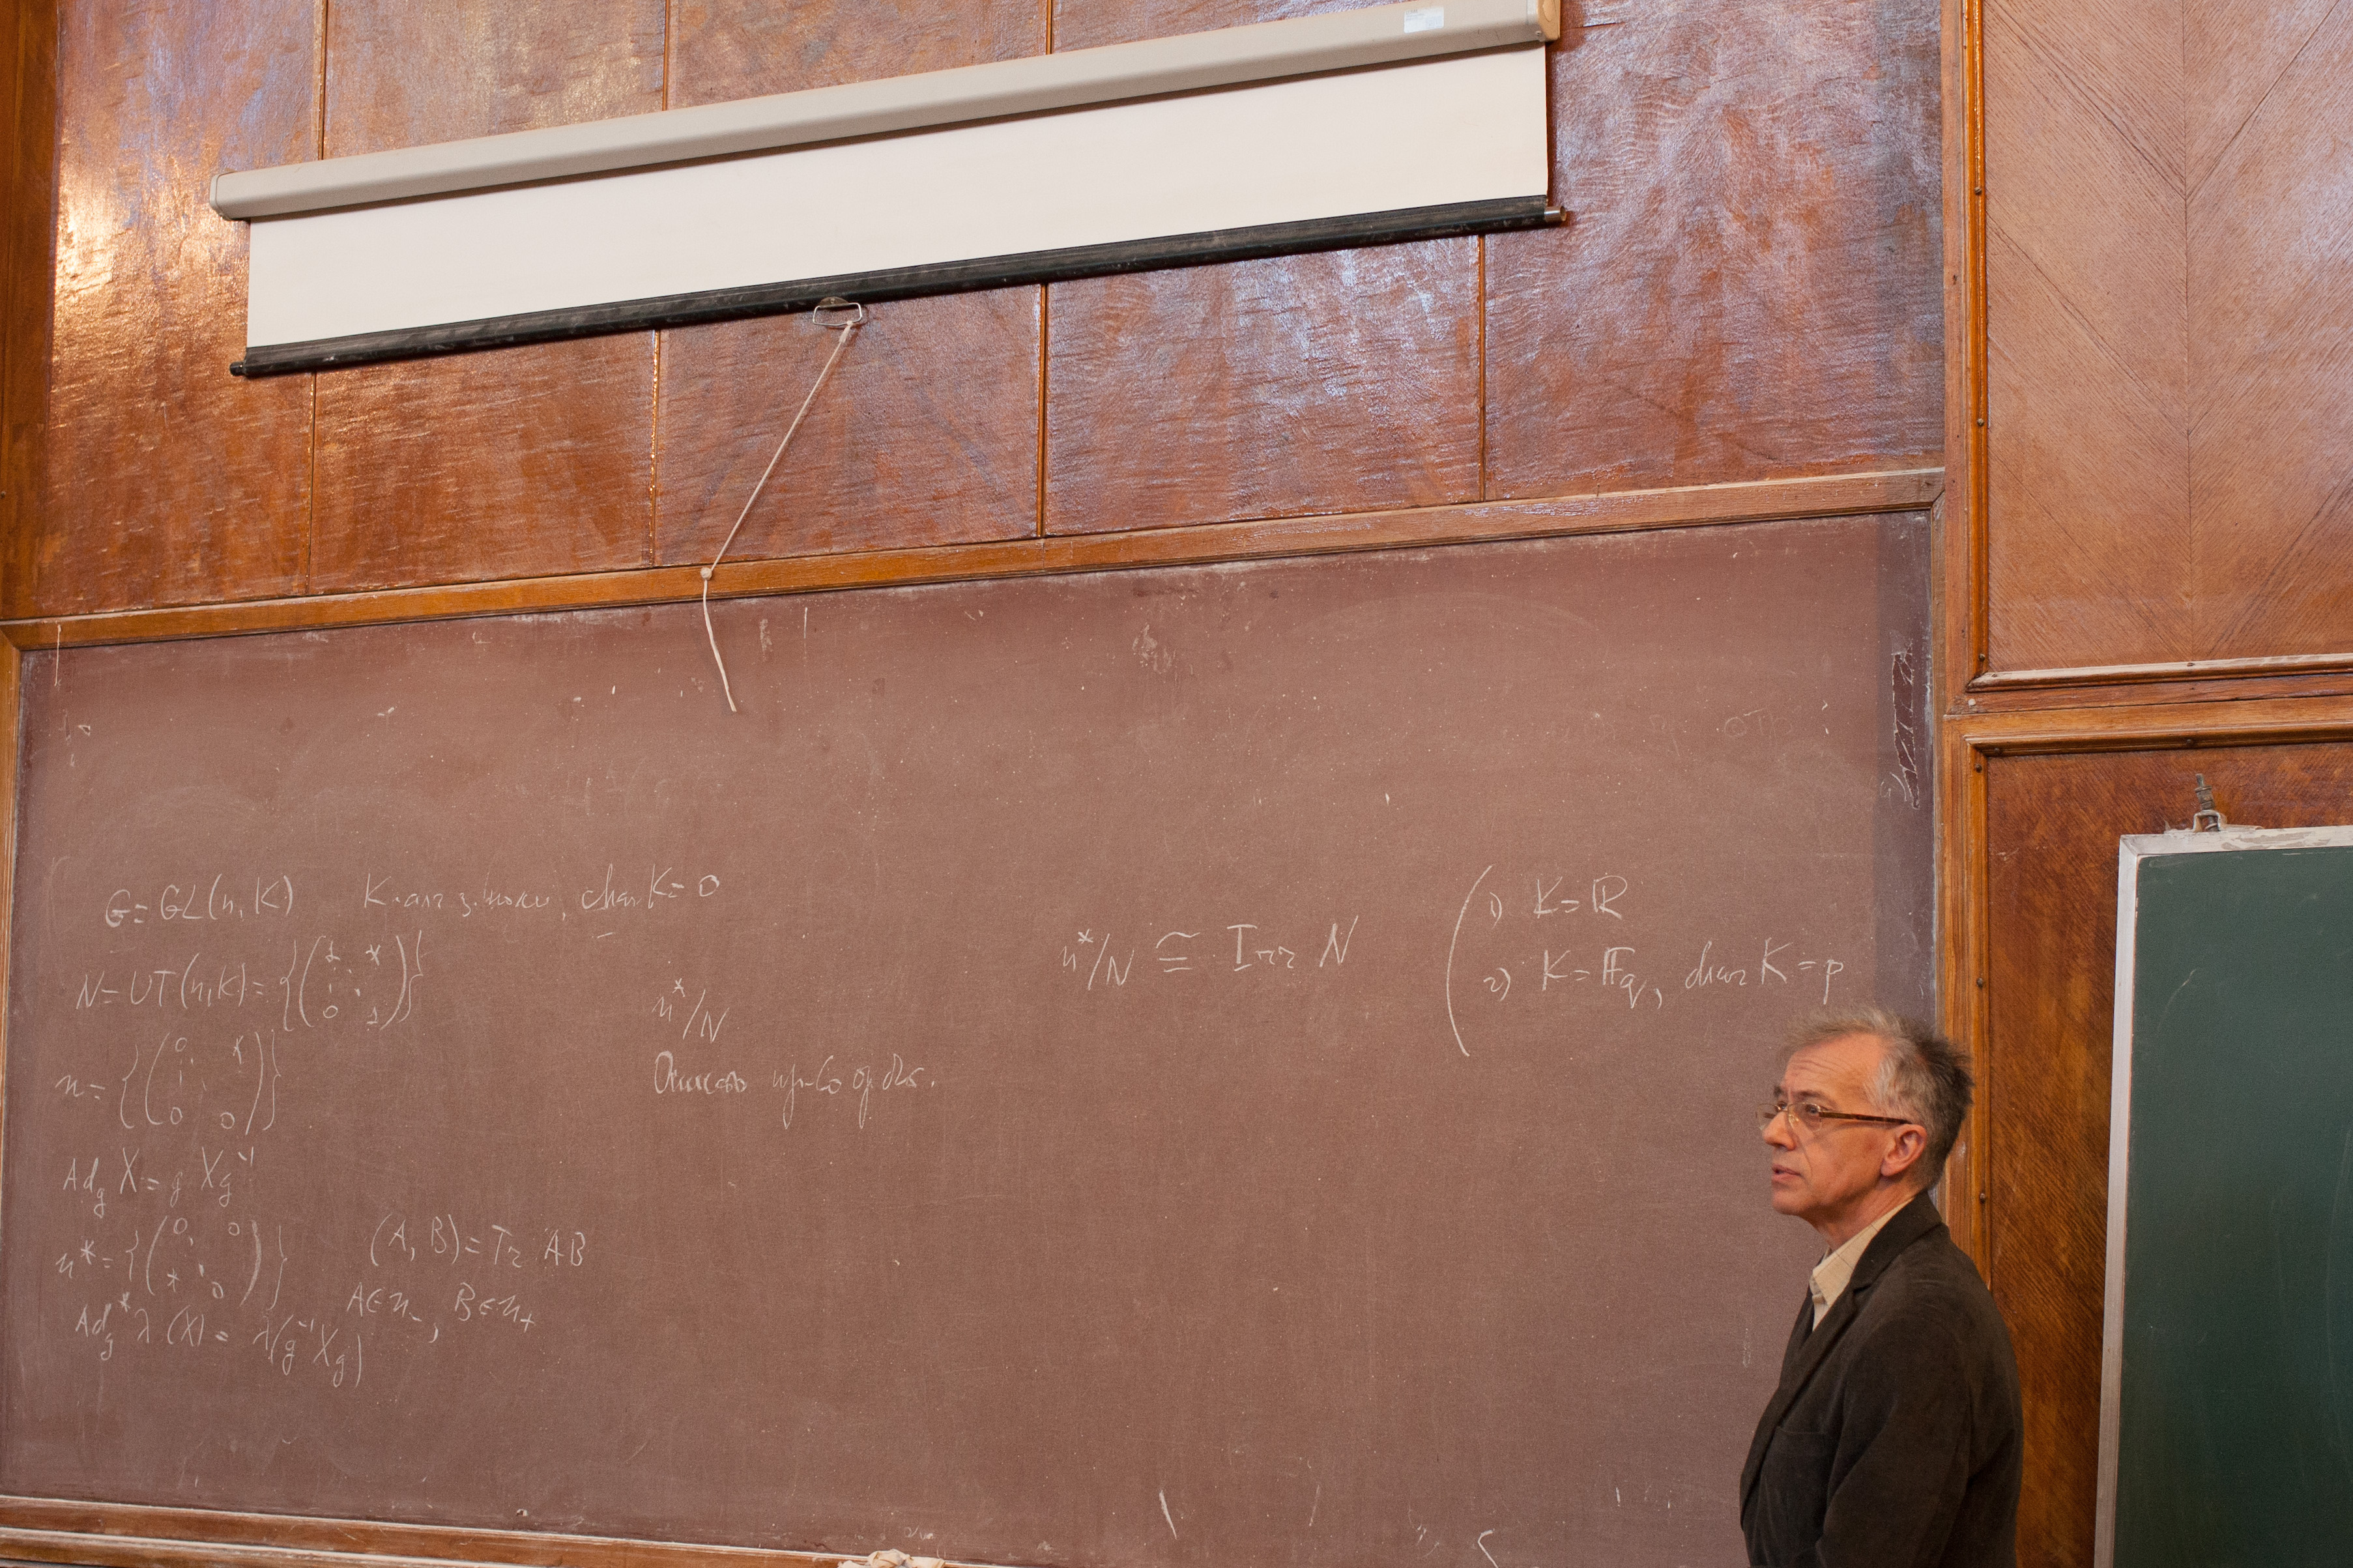 G = GL(n, K) K - алг. замкн., char K = 0
N = UT(n, K) = {(1 * ⋱ 0 1)}
n = {(0 * ⋱ 0 0)}
Ad_g X = g X g⁻¹
n* = {(0 0 ⋱ * 0)} (A, B) = Tr AB
A ∈ n₋, B ∈ n₊
Ad*_g λ(X) = λ(g⁻¹ X g)
n*/N
Описать пр-во орбит.
n*/N ≅ Irr N
1) K = ℝ
2) K = 𝔽_q, char K = p